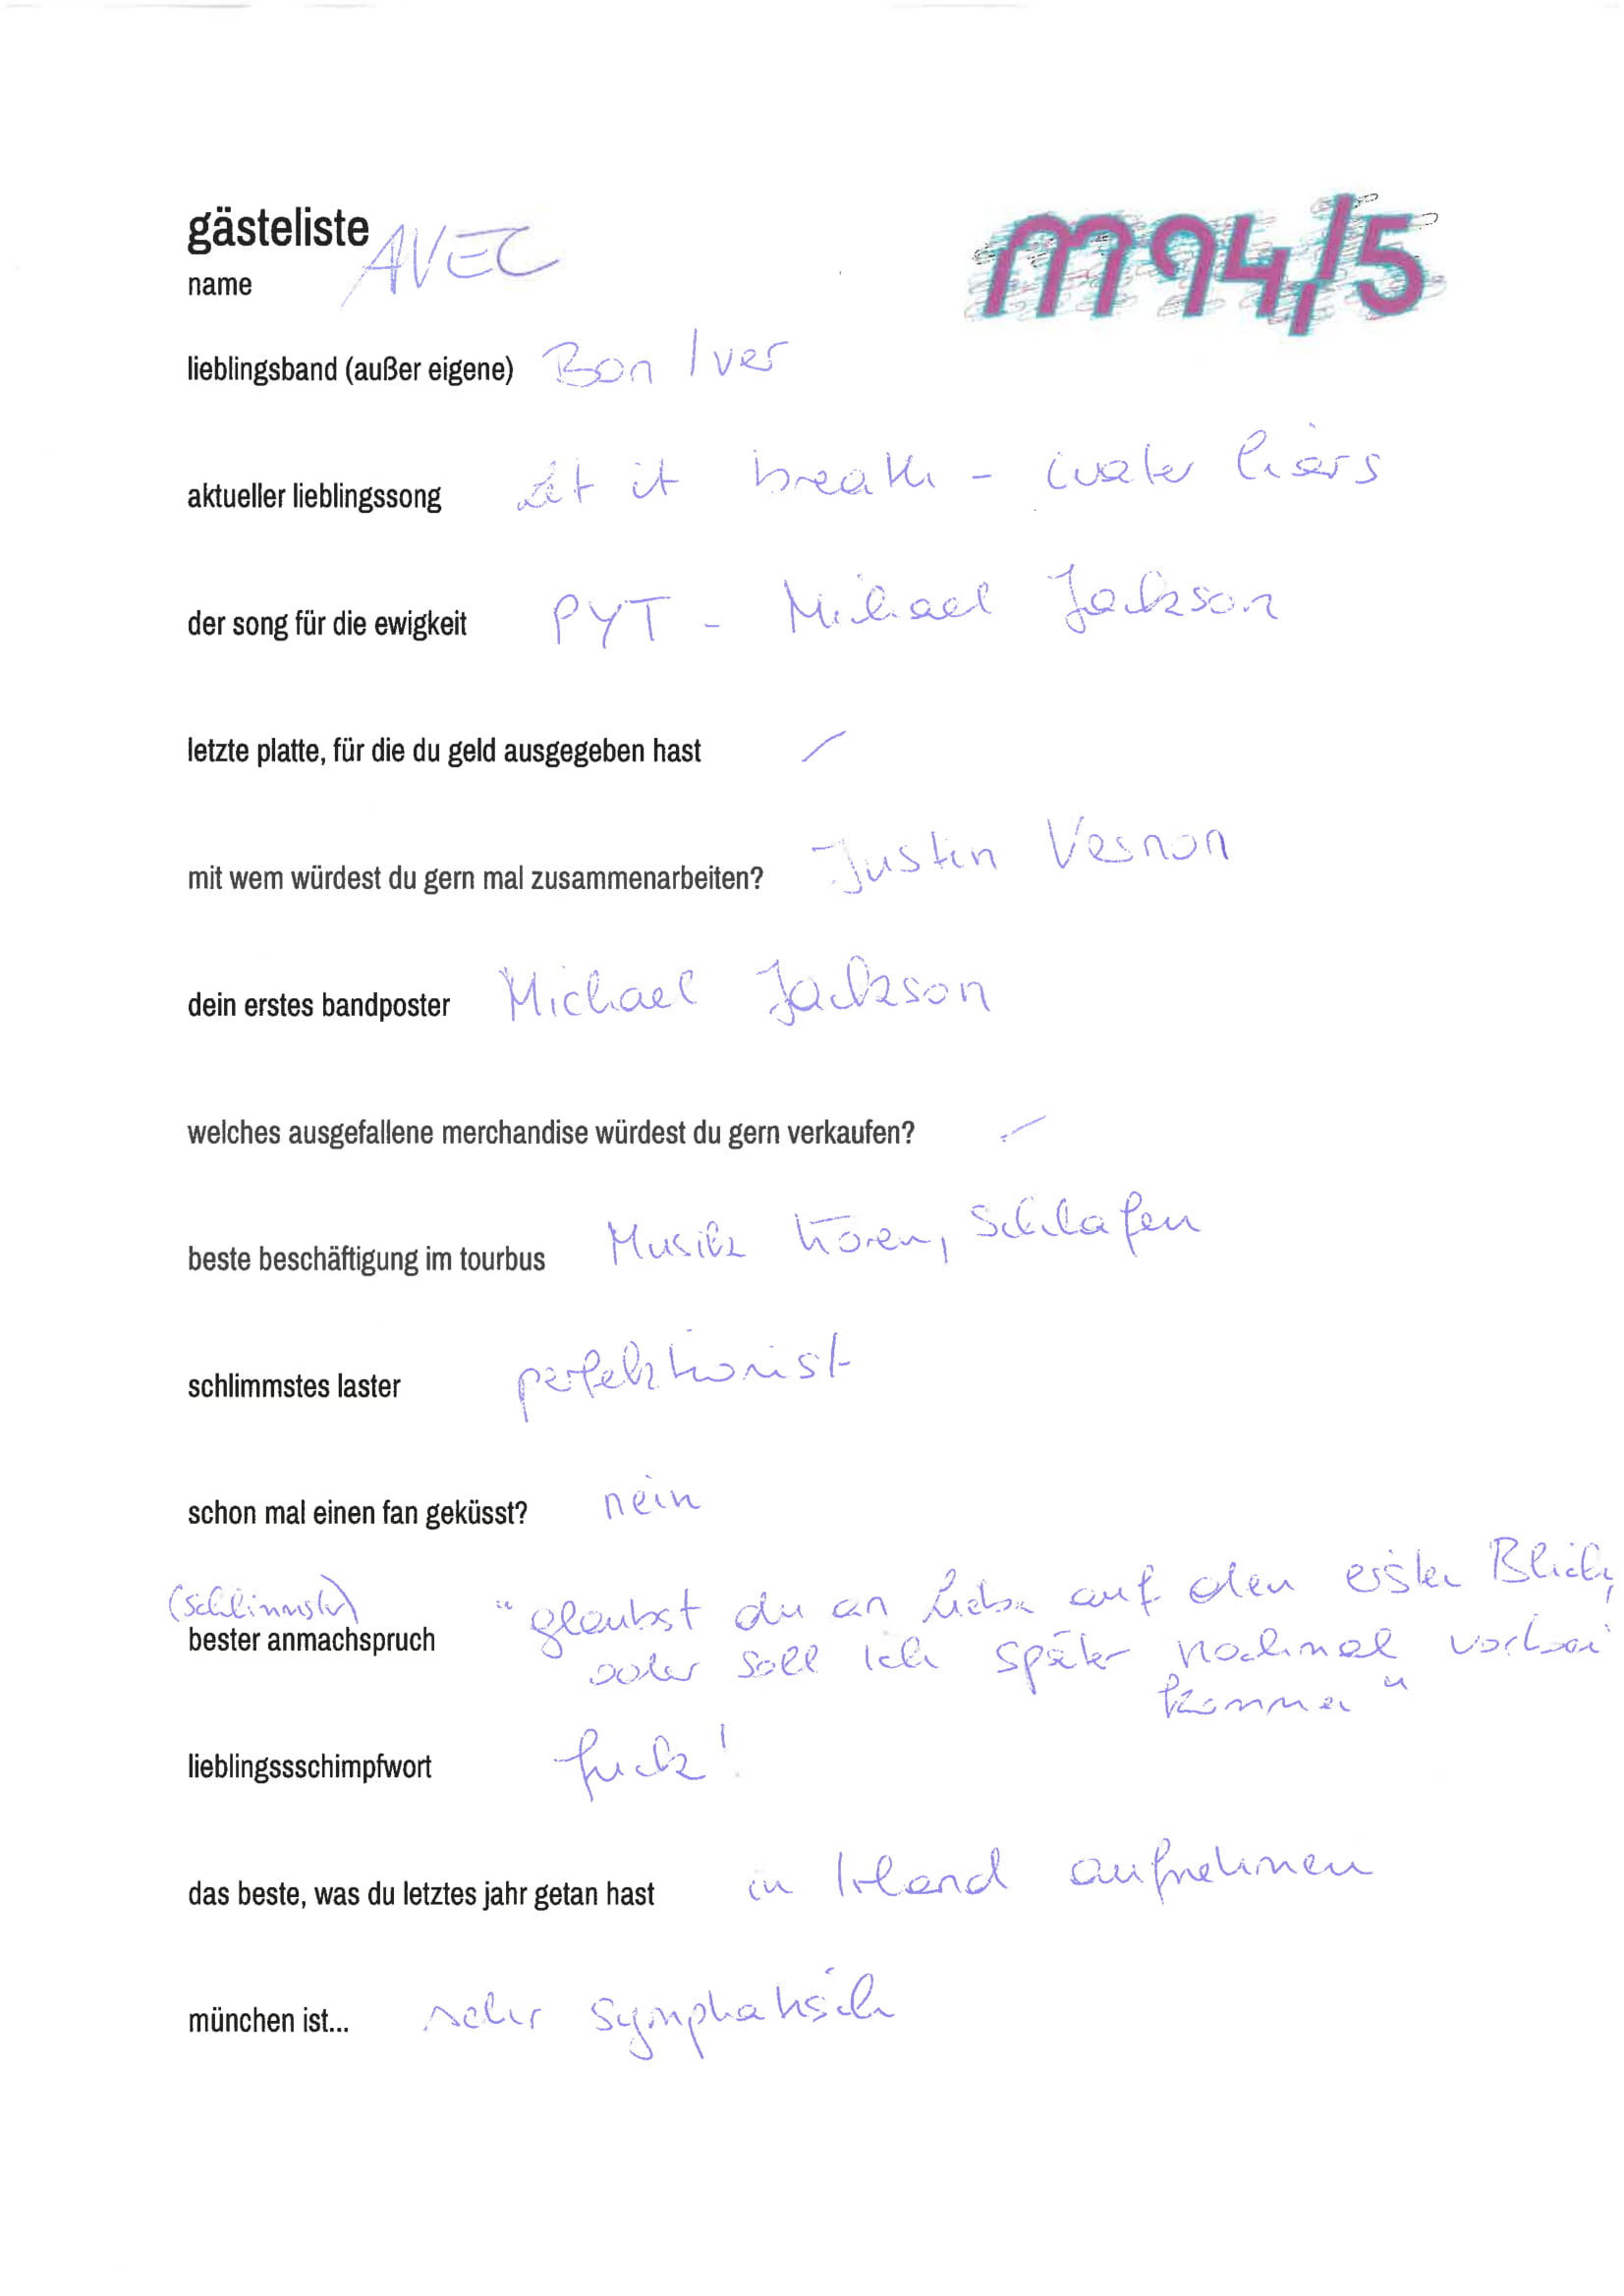 gästeliste
m94/5
name AVEC
lieblingsband (außer eigene) Bon Iver
aktueller lieblingssong Let it breathe - water liars
der song für die ewigkeit PYT - Michael Jackson
letzte platte, für die du geld ausgegeben hast –
mit wem würdest du gern mal zusammenarbeiten? Justin Vernon
dein erstes bandposter Michael Jackson
welches ausgefallene merchandise würdest du gern verkaufen? –
beste beschäftigung im tourbus Musik hören, Schlafen
schlimmstes laster perfektionist
schon mal einen fan geküsst? nein
(schlimmster)
bester anmachspruch "glaubst du an Liebe auf den ersten Blick,
oder soll ich später nochmal vorbei
kommen"
lieblingssschimpfwort fuck!
das beste, was du letztes jahr getan hast in Irland aufnehmen
münchen ist... sehr symphatisch